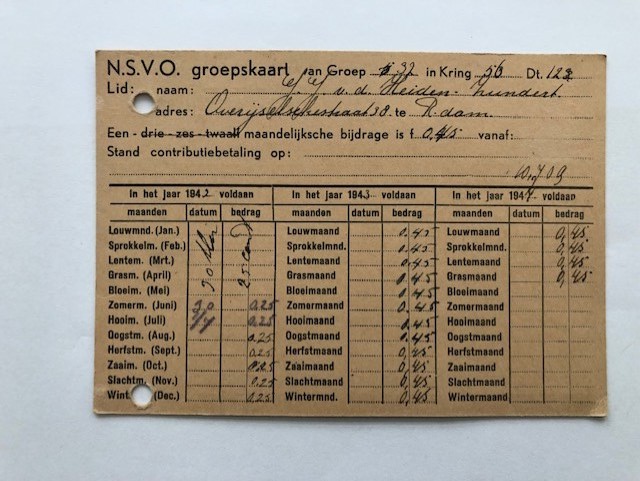 N.S.V.O. groepskaart van Groep 32 in Kring 56 Dt. 123
Lid: naam: v.d. Heiden - Hundert.
adres: Overijselschestraat 38. te R.dam.
Een - drie - zes - twaalf maandelijksche bijdrage is f 0,45 vanaf:
Stand contributiebetaling op:
In het jaar 1942 voldaan In het jaar 1943 voldaan In het jaar 1944 voldaan
maanden datum bedrag maanden datum bedrag maanden datum bedrag
Louwmnd. (Jan.) Louwmaand 0.45 Louwmaand 0,45
Sprokkelm. (Feb.) Sprokkelmnd. 0.45 Sprokkelmnd. 0,45
Lentem. (Mrt.) Lentemaand 0.45 Lentemaand 0,45
Grasm. (April) 25 cent Grasmaand 0.45 Grasmaand 0,45
Bloeim. (Mei) Bloeimaand 0.45 Bloeimaand
Zomerm. (Juni) 0.25 Zomermaand 0.45 Zomermaand
Hooim. (Juli) 0.25 Hooimaand 0.45 Hooimaand
Oogstm. (Aug.) 0.25 Oogstmaand 0.45 Oogstmaand
Herfstm. (Sept.) 0.25 Herfstmaand 0,45 Herfstmaand
Zaaim. (Oct.) 0.25 Zaaimaand 0,45 Zaaimaand
Slachtm. (Nov.) 0.25 Slachtmaand 0,45 Slachtmaand
Wint. (Dec.) 0.25 Wintermnd. 0,45 Wintermnd.